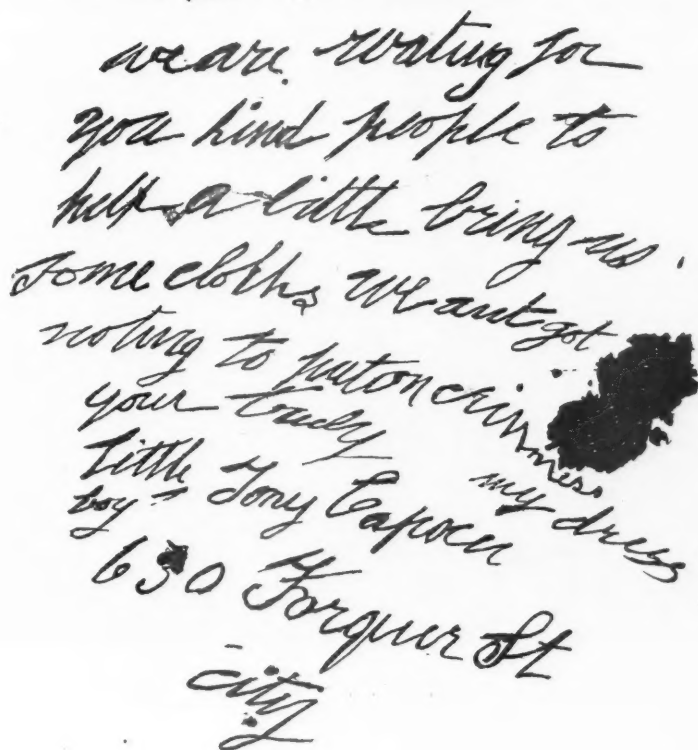 we are. wating for
you kind people to
help a little bring us.
some cloths we ant got
noting to put on crissmess
your truly
my dress
Little Tony Capocci
boy
630 Forquer St
city